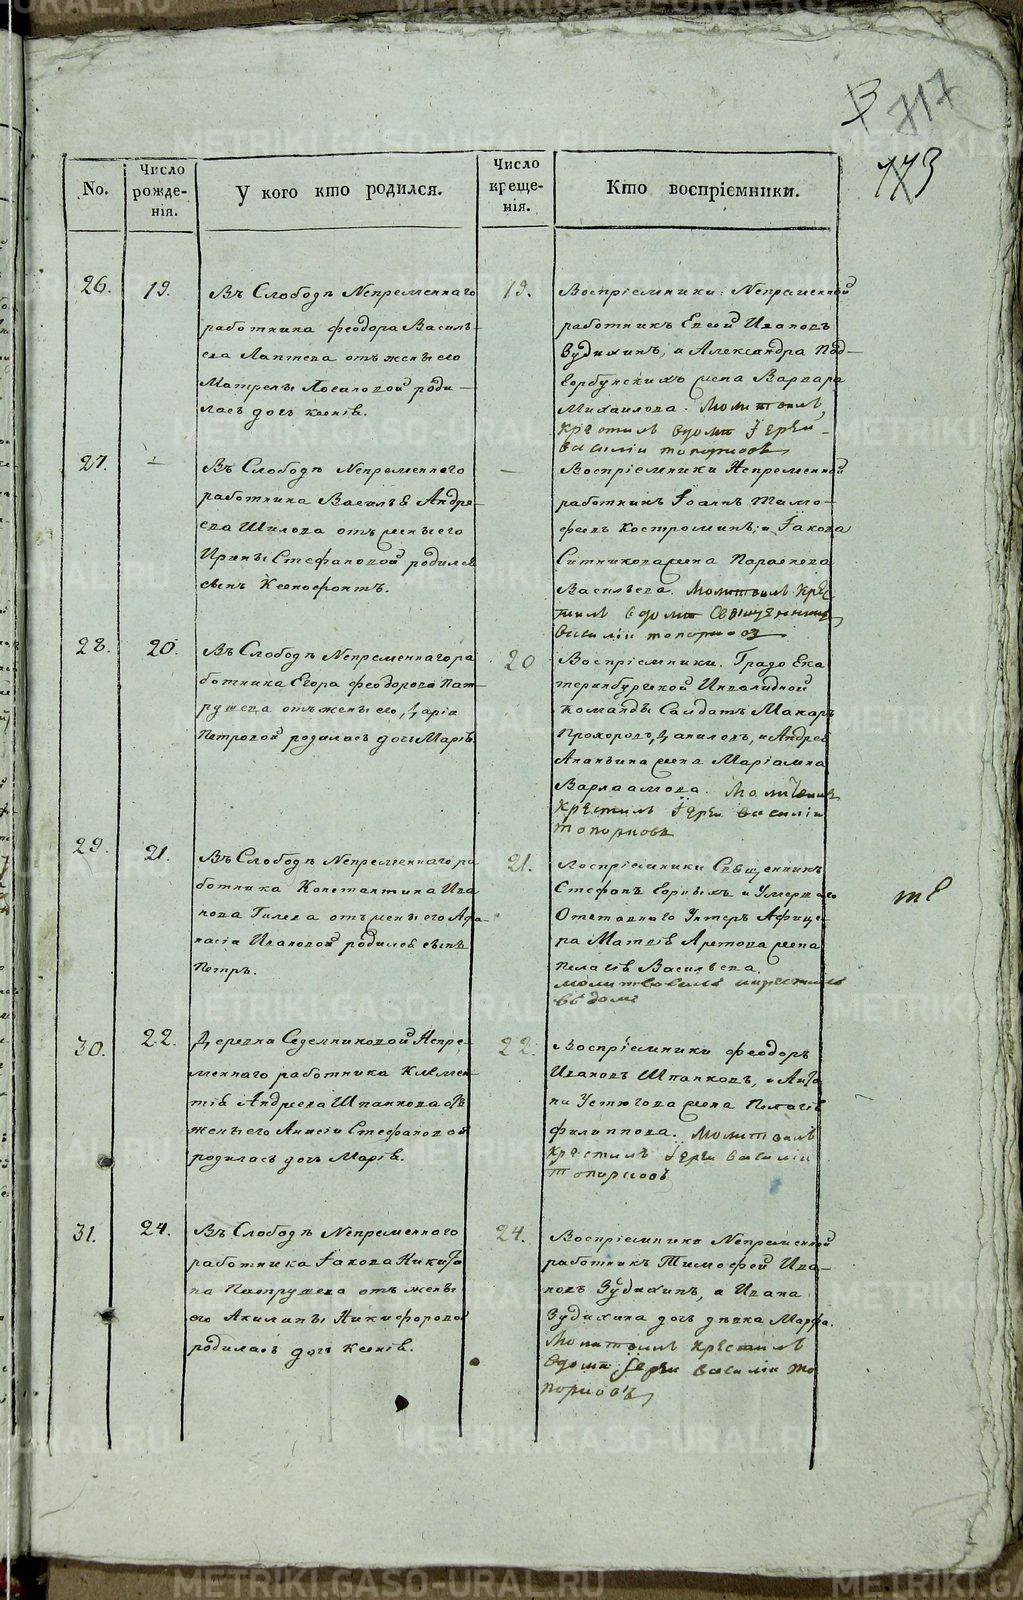 717
173
No.
Число рожде-нія.
У кого кто родился.
Число креще-нія.
Кто воспріемники.
26.
19.
Въ Слободѣ Непременнаго
работника Феодора Василь-
ева Лаптева отъ жены его
Матрены Иосиповой роди-
лась дочь Ксенія.
19.
Воспріемники: Непременной
работникъ Евсей Ивановъ
Зудихинъ, и Александра Под-
горбунскихъ жена Варвара
Михаилова. Молитвилъ,
крестилъ вдомѣ Іерей
василіи топорковъ
27.
Въ Слободѣ Непременнаго
работника Василья Андре-
ева Шилова отъ жены его
Ирины Стефановой родился
сынъ Ксенофонтъ.
Воспріемники Непременной
работникъ Іоаннъ Тимо-
феевъ Костроминъ, и Іакова
Ситникова жена Параскева
Васильева. Молитвилъ Крес
тилъ вдомѣ Священникъ
василіи топорков
28.
20.
Въ Слободѣ Непременнаго ра
ботника Егора Феодорова Пат-
рушева отъ жены его Даріи
Петровой родилась дочь Марія.
20
Воспріемники. Градо Ека
теринбургской Инвалидной
команды Салдатъ Макаръ
Прохоровъ Даниловъ, и Андрея
Ананьина жена Маріамна
Варлаамова. Молитвилъ
крестилъ Іереи василіи
топорковъ
29.
21.
Въ Слободѣ Непременнаго ра
ботника Константина Ива
нова Гилева отъ жены его Афа
насіи Ивановой родился сынъ
Петръ.
21.
Воспріемники Священникъ
Стефанъ Горныхъ и Умершаго
Отставнаго Унтеръ Афице-
ра Матвѣя Аретова жена
Пелагія Васильева.
молитвовалъ икрестилъ
въ домѣ
30.
22.
Деревни Седелниковой Непре-
меннаго работника Клемен-
тія Андреева Шпанкова отъ
жены его Анисіи Стефановой
родилась дочь Марія.
22.
Воспріемники Феодоръ
Ивановъ Шпанковъ, и Анто
на Устюгова жена Пелагія
Филиппова. Молитвилъ
крестилъ Іереи василіи
топорковъ
31.
24.
Въ Слободѣ Непременнаго
работника Іакова Никити
на Патрушева отъ жены
его Акилины Никифоровой
родилась дочь Ксенія.
24.
Воспріемники Непременной
работникъ Тимофей Ива-
новъ Зудихинъ, и Ивана
Зудихина дочь дѣвка Марфа.
Молитвилъ крестилъ
вдомѣ Іереи василіи то
порковъ
METRIKI.GASO-URAL.RU